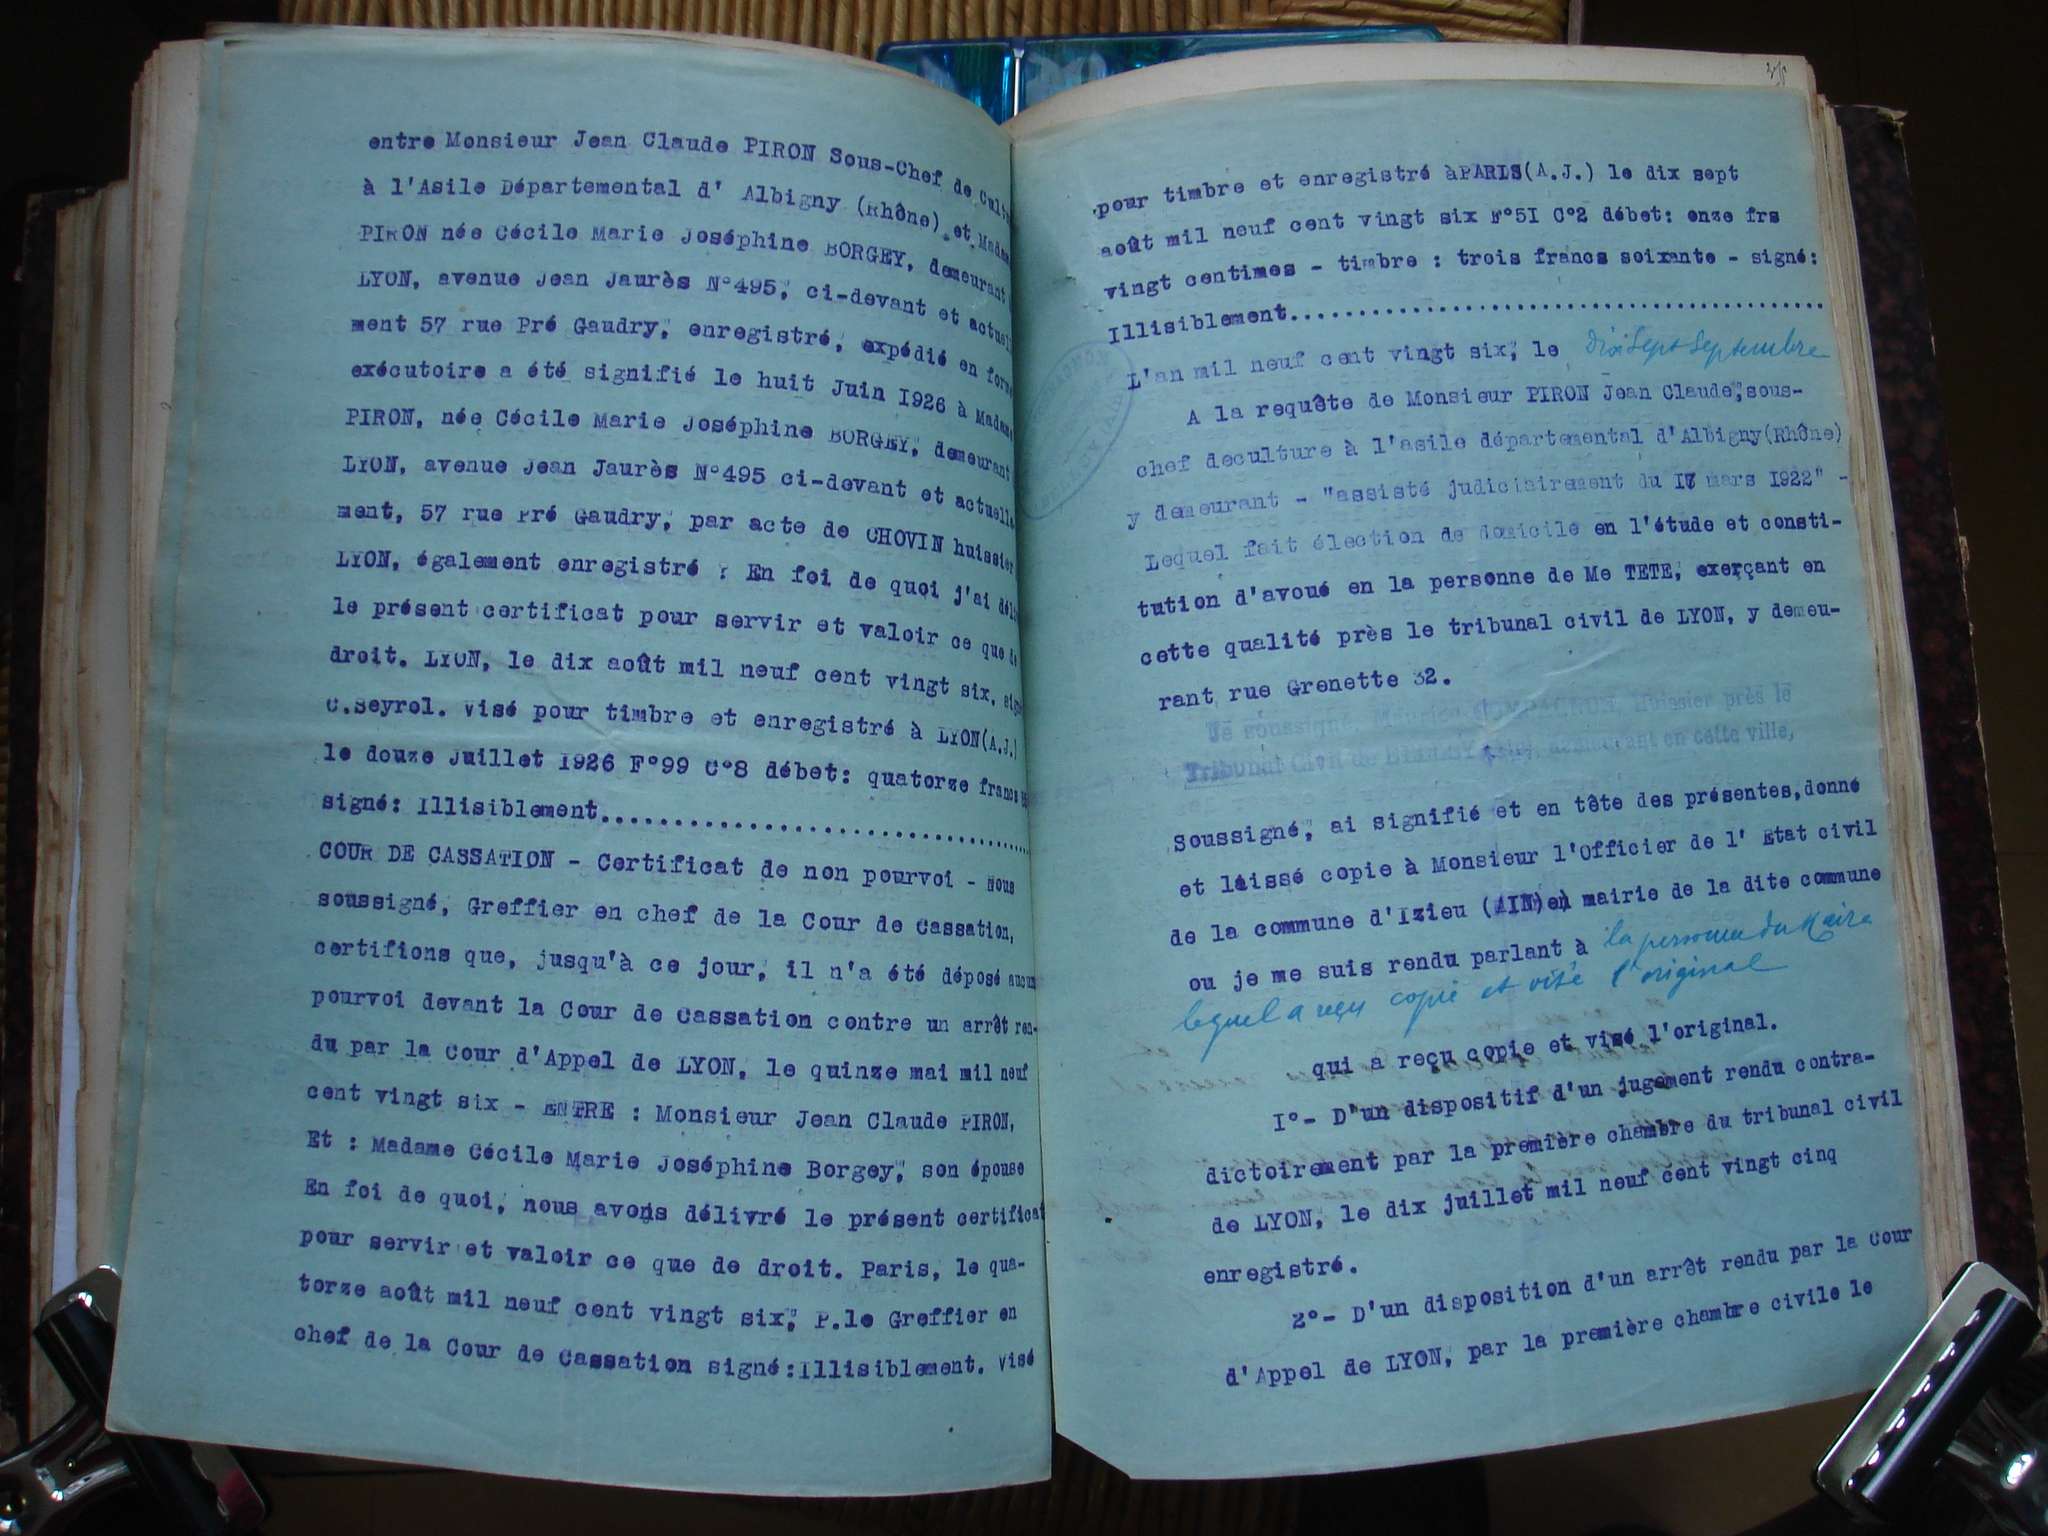 entre Monsieur Jean Claude PIRON Sous-Chef de
à l'Asile Départemental d' Albigny (Rhône) et
PIRON née Cécile Marie Joséphine BORGEY, demeurant
LYON, avenue Jean Jaurès N°495, ci-devant et
ment 57 rue Pré Gaudry, enregistré, expédié en
exécutoire a été signifié le huit Juin I926 à Madame
PIRON, née Cécile Marie Joséphine BORGEY, demeurant
LYON, avenue Jean Jaurès N°495 ci-devant et actuelle
ment, 57 rue Pré Gaudry, par acte de CHOVIN huissier
LYON, également enregistré : En foi de quoi j'ai
le présent certificat pour servir et valoir ce que de
droit. LYON, le dix août mil neuf cent vingt six,
C.Seyrol. Visé pour timbre et enregistré à LYON(A.J.)
le douze Juillet I926 F°99 C°8 débet: quatorze francs
signé: Illisiblement..............................
COUR DE CASSATION - Certificat de non pourvoi - Nous
soussigné, Greffier en chef de la Cour de Cassation,
certifions que, jusqu'à ce jour, il n'a été déposé aucun
pourvoi devant la Cour de Cassation contre un arrêt ren-
du par la Cour d'Appel de LYON, le quinze mai mil neuf
cent vingt six - ENTRE : Monsieur Jean Claude PIRON,
Et : Madame Cécile Marie Joséphine Borgey, son épouse
En foi de quoi, nous avons délivré le présent certificat
pour servir et valoir ce que de droit. Paris, le qua-
torze août mil neuf cent vingt six, P.le Greffier en
chef de la Cour de Cassation signé:Illisiblement. Visé
pour timbre et enregistré àPARIS(A.J.) le dix sept
août mil neuf cent vingt six F°5I C°2 débet: onze frs
vingt centimes - timbre : trois francs soixante - signé:
Illisiblement........................................
L'an mil neuf cent vingt six, le dix Sept Septembre
A la requête de Monsieur PIRON Jean Claude, sous-
chef deculture à l'asile départemental d'Albigny(Rhône)
y demeurant - "assisté judiciairement du I7 mars I922" -
Lequel fait élection de domicile en l'étude et consti-
tution d'avoué en la personne de Me TETE, exerçant en
cette qualité près le tribunal civil de LYON, y demeu-
rant rue Grenette 32.
Je soussigné Huissier près le
Tribunal Civil de demeurant en cette ville,
Soussigné, ai signifié et en tête des présentes,donné
et laissé copie à Monsieur l'Officier de l' Etat civil
de la commune d'Izieu (AIN)en mairie de la dite commune
ou je me suis rendu parlant à la personne du Maire
lequel a reçu copie et visé l'original
qui a reçu copie et visé l'original.
I°- D'un dispositif d'un jugement rendu contra-
dictoirement par la première chambre du tribunal civil
de LYON, le dix juillet mil neuf cent vingt cinq
enregistré.
2°- D'un disposition d'un arrêt rendu par la Cour
d'Appel de LYON, par la première chambre civile le